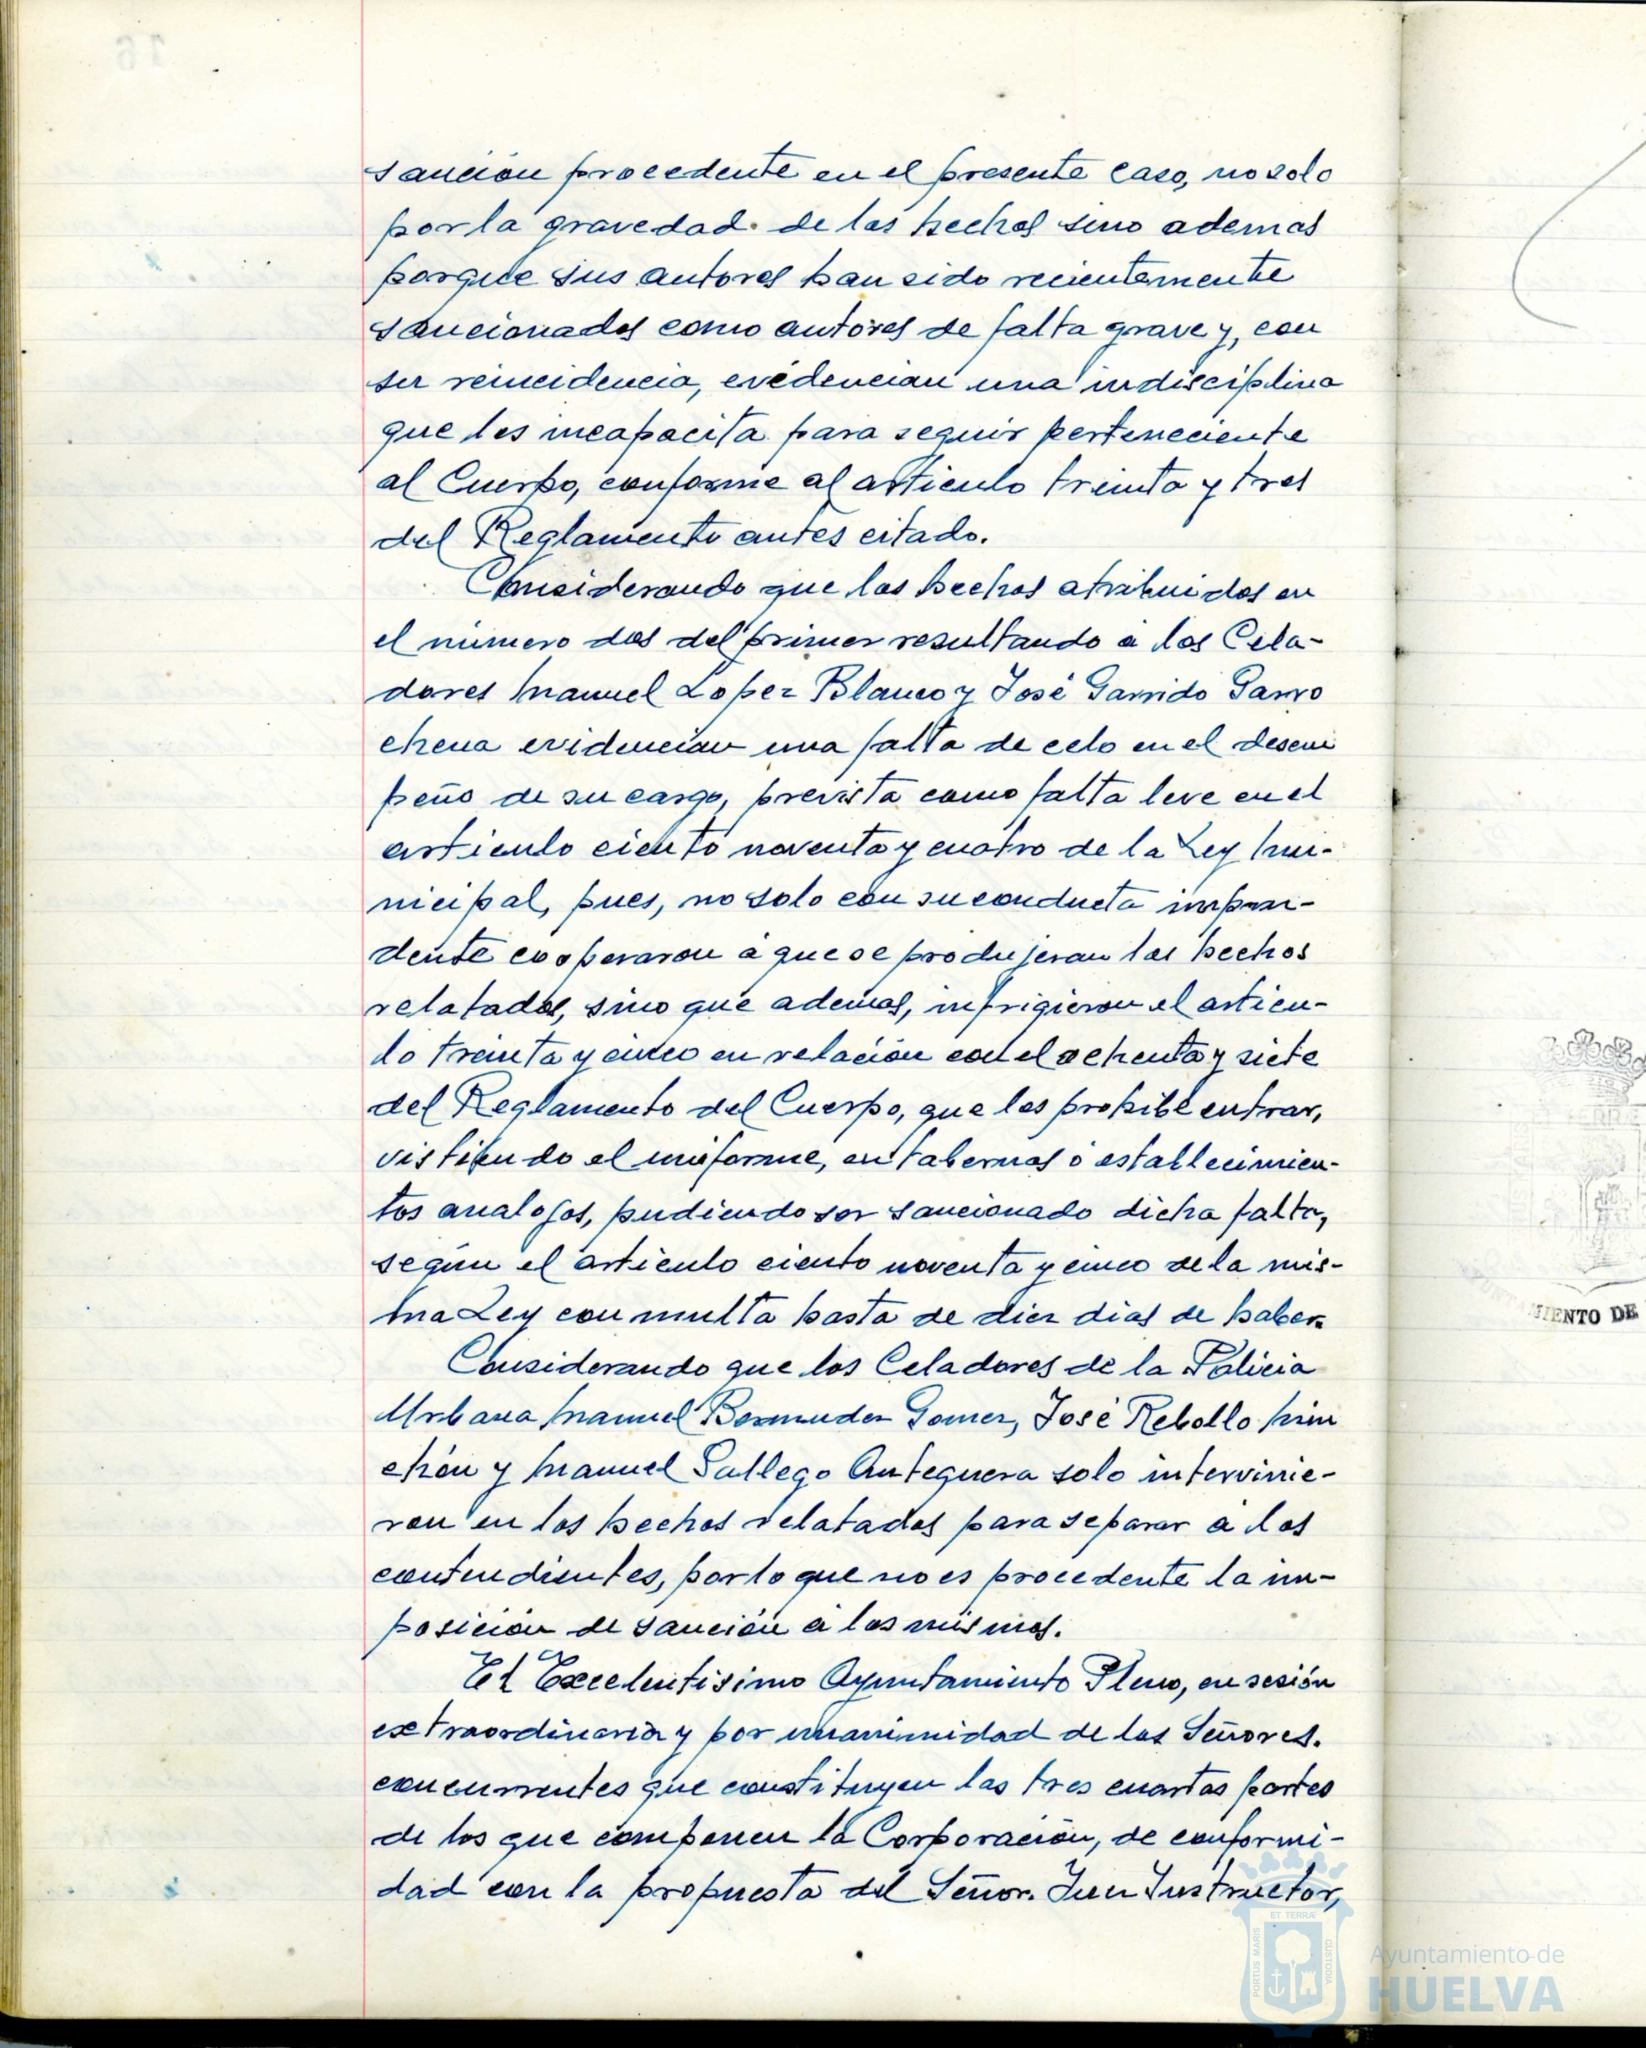 sanción procedente en el presente caso, no solo
por la gravedad de los hechos sino ademas
porque sus autores han sido recientemente
sancionados como autores de falta grave y, con
su reincidencia, evidencian una indisciplina
que les incapacita para seguir perteneciente
al Cuerpo, conforme al articulo treinta y tres
del Reglamento antes citado.
Considerando que los hechos atribuidos en
el número dos del primer resultando a los Cela-
dores Manuel Lopez Blanco y José Garrido Garro
chena evidencian una falta de celo en el desem
peño de su cargo, prevista como falta leve en el
articulo ciento noventa y cuatro de la Ley Mu-
nicipal, pues, no solo con su conducta impru-
dente cooperaron a que se produjeran los hechos
relatados, sino que ademas, infrigieron el articu-
lo treinta y cinco en relación con el ochenta y siete
del Reglamento del Cuerpo, que les prohibe entrar,
vistiendo el uniforme, en tabernas o establecimien-
tos analogos, pudiendo ser sancionado dicha falta,
según el articulo ciento noventa y cinco de la mis-
ma Ley con multa hasta de diez dias de haber.
Considerando que los Celadores de la Policia
Urbana Manuel Bermudez Gomez, José Rebollo Min
chón y Manuel Gallego Antequera solo intervinie-
ron en los hechos relatados para separar a los
contendientes, por lo que no es procedente la im-
posición de sanción a los mismos.
El Excelentisimo Ayuntamiento Pleno, en sesión
extraordinaria y por unanimidad de los Señores.
concurrentes que constituyen las tres cuartas partes
de los que componen la Corporación, de conformi-
dad con la propuesta del Señor. Juez Instructor,
16
MIENTO DE
PORTUS MARIS
ET TERRÆ
CUSTODIA
Ayuntamiento de
HUELVA